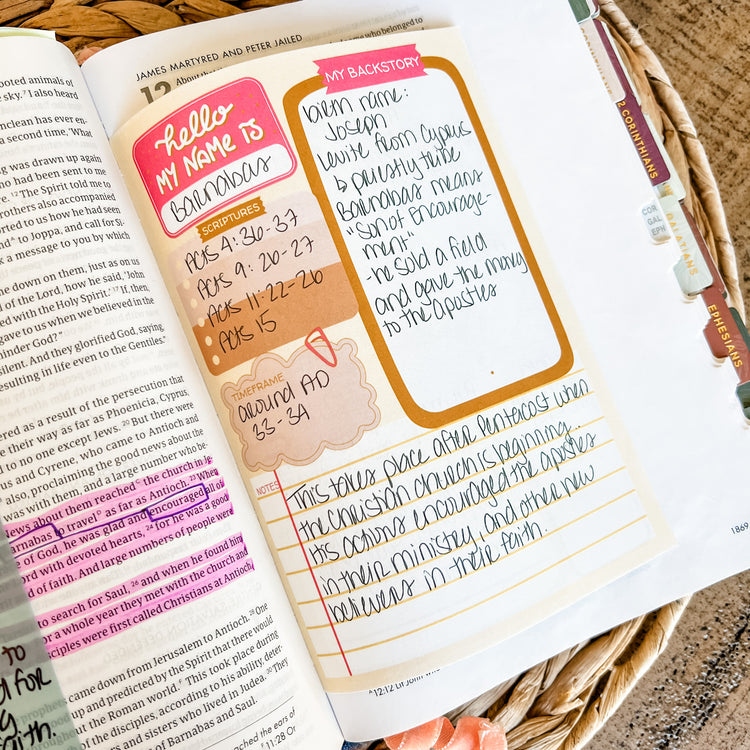 ooted animals of
sky.⁷ I also heard
nclean has ever en-
a second time, 'What
ng was drawn up again
who had been sent to me
re. ¹² The Spirit told me to
brothers also accompanied
orted to us how he had seen
and to Joppa, and call for
k a message to you by which
me down on them, just as on us
d of the Lord, how he said, 'John
ed with the Holy Spirit.' If, then,
gave to us when we believed in the
hinder God?"
silent. And they glorified God, saying,
resulting in life even to the Gentiles."
ered as a result of the persecution that
e their way as far as Phoenicia, Cyprus,
d to no one except Jews. ²⁰ But there
us and Cyrene, who came to Antioch and
also, proclaiming the good news about the
was with them, and a large number who be-
News about them reached the church in Je-
Barnabas to travel as far as Antioch. ²³ When
e of God, he was glad and encouraged all of
ord with devoted hearts, ²⁴ for he was a good
d of faith. And large numbers of people were
to search for Saul, ²⁶ and when he found him
or a whole year they met with the church and
sciples were first called Christians at Antioch.
came down from Jerusalem to Antioch. ²⁸ One
up and predicted by the Spirit that there would
hout the Roman world. This took place during
of the disciples, according to his ability, deter-
ers and sisters who lived in Judea. ³⁰ They
of Barnabas and Saul.
ached the ears of
11:28 Or
to
d for
faith.
JAMES MARTYRED AND PETER JAILED
12 About that
who belonged to
hello
MY NAME IS
Barnabas
SCRIPTURES
Acts 4:36-37
Acts 9:26-27
Acts 11:22-26
Acts 15
TIMEFRAME
around AD
33-34
MY BACKSTORY
birth name:
Joseph
Levite from Cyprus
↳ priestly tribe
Barnabas means
"son of Encourage-
ment"
-he sold a field
and gave the money
to the apostles
NOTES
This takes place after Pentecost when
the Christian church is beginning..
His actions encouraged the apostles
in their ministry, and other new
believers in their faith.
1869
2 CORINTHIANS
COR
GAL
EPH
GALATIANS
EPHESIANS